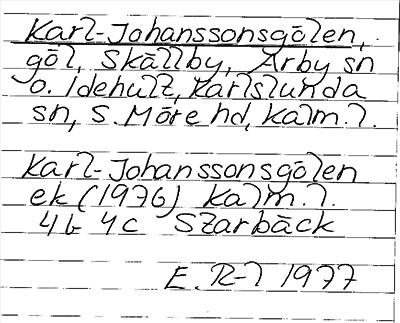 Karl-Johanssonsgölen,
göl, Skällby, Arby sn
o. Idehult, Karlslunda
sn, S. Möre hd, Kalm. l.
Karl-Johanssonsgölen
ek (1976) Kalm. l.
4G 4c Starbäck
E. R-l 1977